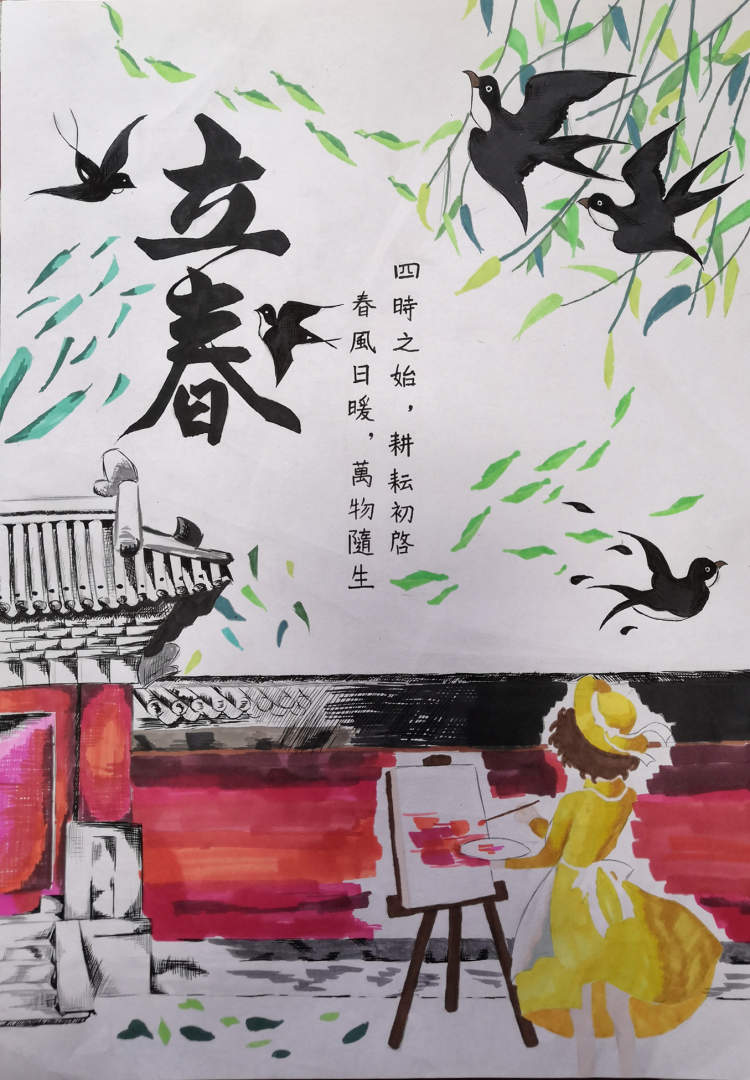 立春
四時之始，耕耘初啓
春風日暖，萬物隨生